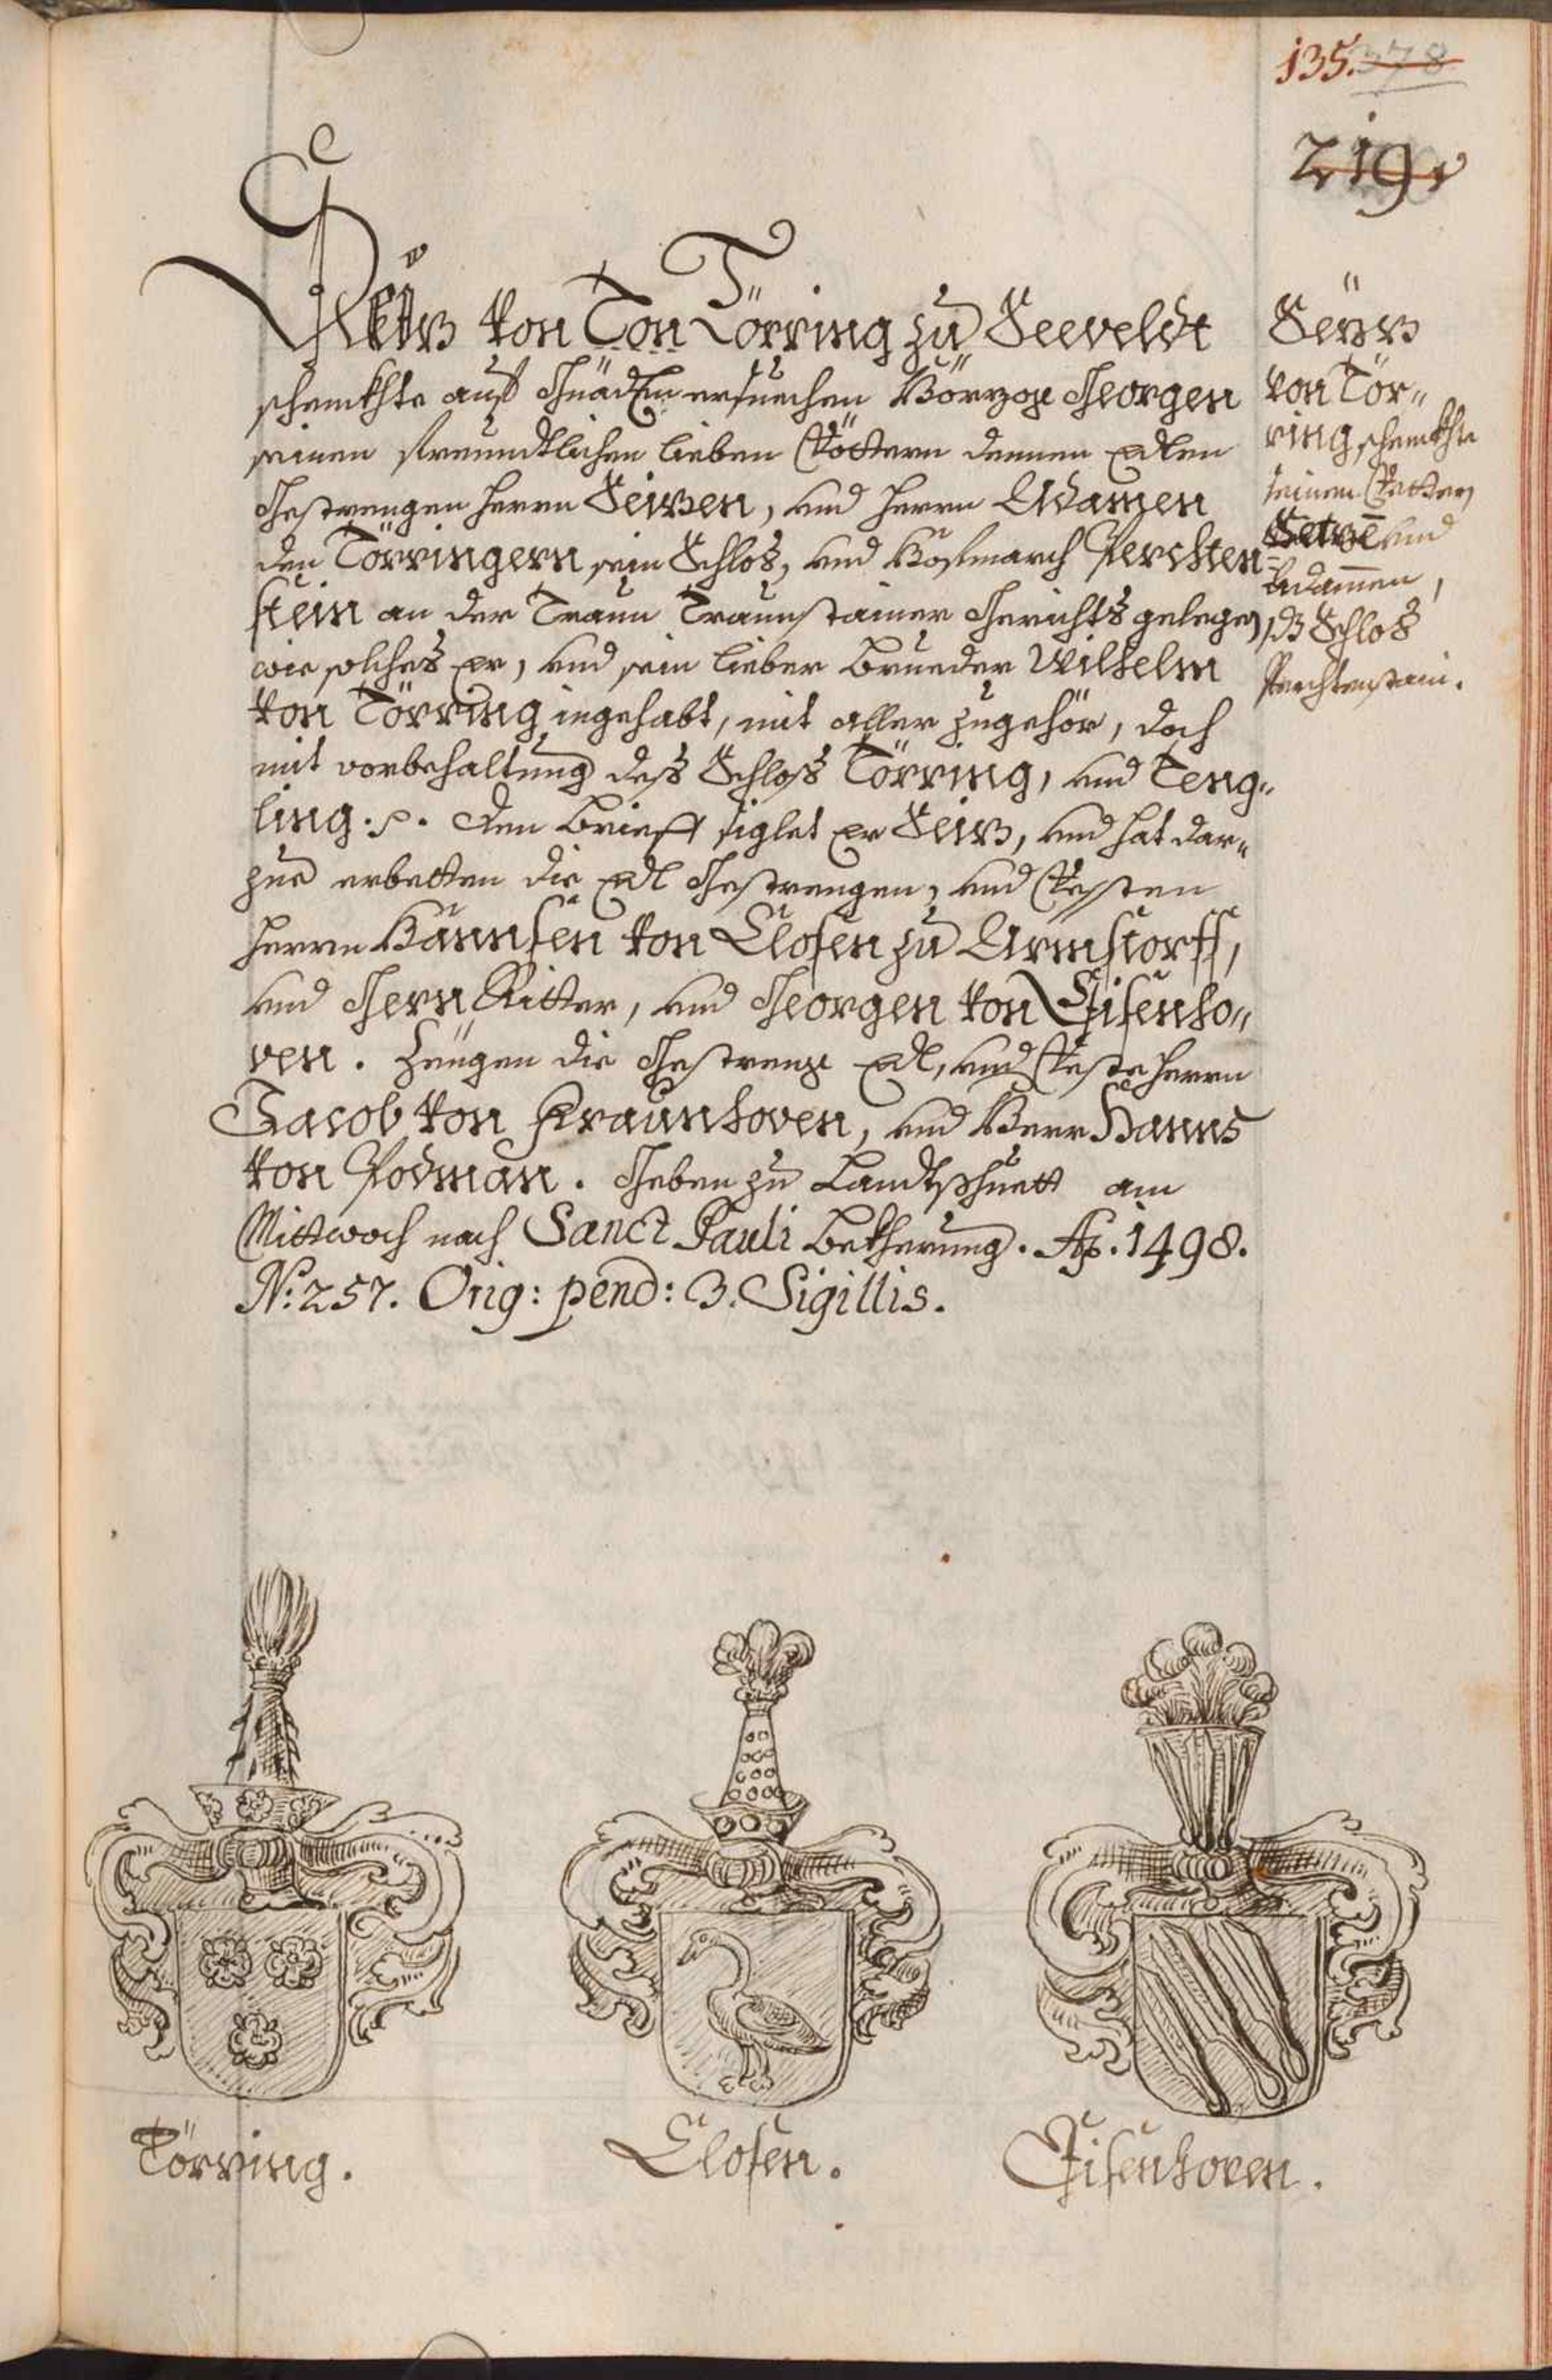 135. 378
219.
von Ton Törring zu Seeveldt
schennkhte auß Gnädigen ersuechen Hörzog Georgen
seinen freundtlichen lieben Vöttern dennen Edlen
Gestrengen herrn Seizen, vnd herrn Adamen
den Törringern sein Schlos, vnd Hofmarch Perchten=
stein an der Traun Traunstainer Gerichts gelegen,
wie solches er, vnd sein lieber Brueder Wilhelm
von Törring ingehabt, mit aller zugehör, doch
mit vorbehaltung deß Schloß Törring, vnd Teng=
ling. Den brieff siglet er Seiz, vnd hat dar=
zue erbetten die Edl Gestrengen, vnd Vessten
herrn Hannsen von Closen zu Armstorff,
vnd Gern Ritter, vnd Georgen von Eisenho=
ven. Zeugen die Gestreng Edl, vnd Veste herrn
Jacob von Fraunhoven, vnd Herr Hanns
von Podman. Geben zu Landtshuett am
Mittwoch nach Sanct Pauli Bekherung. Ao. 1498.
No: 257. Orig: pend: 3. Sigillis.
von Tör=
ring schennkhte
seinen Vettern
vnd
Adamen,
dz Schlos
Perchtenstain.
Törring.
Closen.
Eisenhoven.